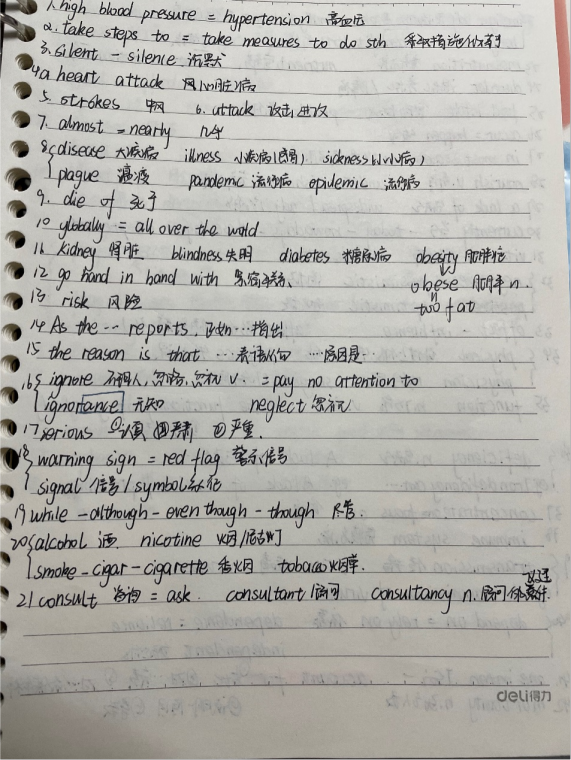 1. high blood pressure = hypertension 高血压
2. take steps to = take measures to do sth 采取措施做某事
3. silent - silence 沉默
4 a heart attack 心脏病
5. strokes 中风 6. attack 攻击 进攻
7. almost = nearly 几乎
8 { disease 大疾病 illness 小疾病 sickness (小病)
plague 瘟疫 pandemic 流行病 epidemic 流行病
9. die of 死于
10 globally = all over the world
11 kidney 肾脏 blindness 失明 diabetes 糖尿病 obesity 肥胖症
12 go hand in hand with obese 肥胖 n.
13 risk 风险 too fat
14 As the ... reports, 正如…指出
15 the reason is that ... 表语从句 …原因是…
16 { ignore 不理人, 忽略, 忽视 v. = pay no attention to
ignorance 无知 neglect 忽视
17 serious ①认真 ②严肃 ③严重.
18 { warning sign = red flag 警示信号
signal 信号 / symbol 象征
19 while - although - even though - though 尽管
20 { alcohol 酒 nicotine
smoke - cigar - cigarette 香烟 tobacco 烟草.
21 consult 咨询 = ask. consultant 顾问 consultancy n.
deli得力